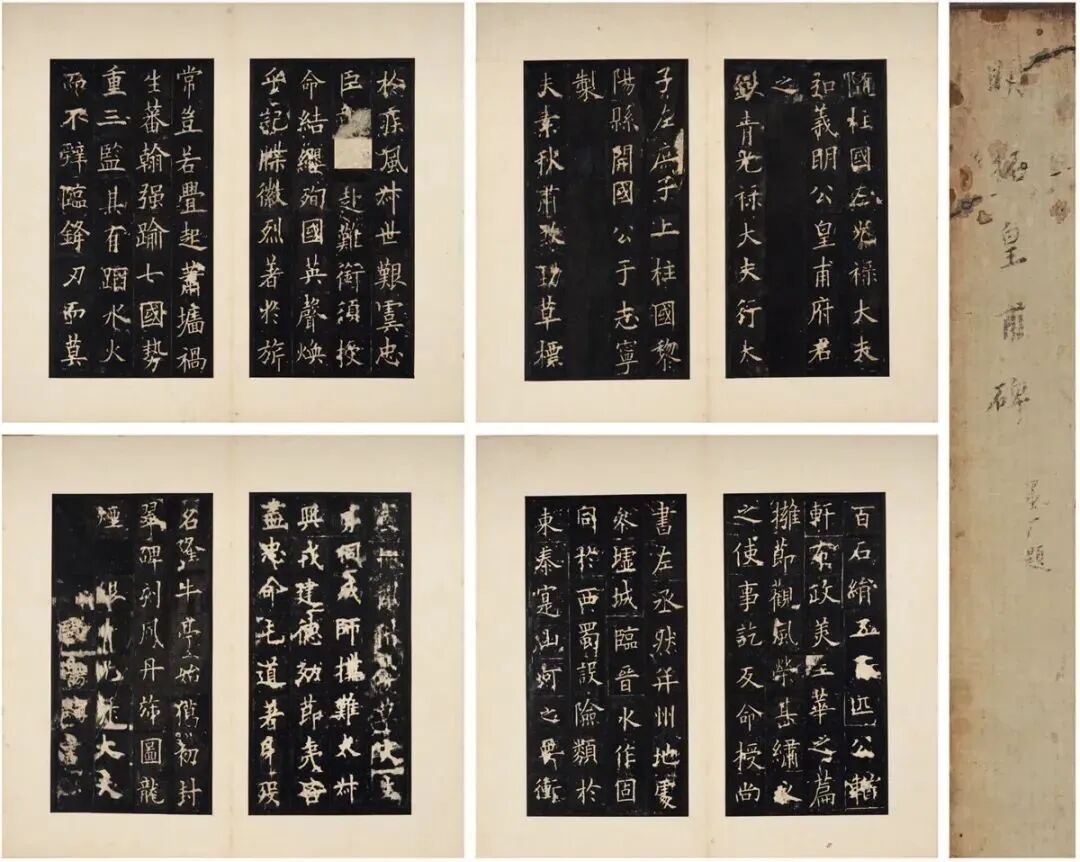 明拓皇甫碑
題
隨柱國左光祿大夫
弘義明公皇甫府君
之
銀青光祿大夫行太
子左庶子上柱國黎
陽縣開國公于志寧
製
夫素秋肅煞勁草標
於疾風叔世艱虞忠
臣赴難銜須授
命結纓殉國英聲煥
乎記牒徽烈著於旂
常豈若舋起蕭墻禍
生蕃翰强踰七國勢
重三監其有蹈水火
而不辭臨鋒刃而莫
百石絹五百匹公輶
軒布政美王華之篇
擁節觀風榮甚繡衣
之使事訖反命授尚
書左丞然并州地處
參墟城臨晉水作固
同於西蜀設險類於
東秦寔山河之要衝
何成師構難太叔
興戎建德効節夷吾
盡忠命屯道著身歿
名隆牛亭始初封
翠碑刻鳳丹旐圖龍
煙
大夫